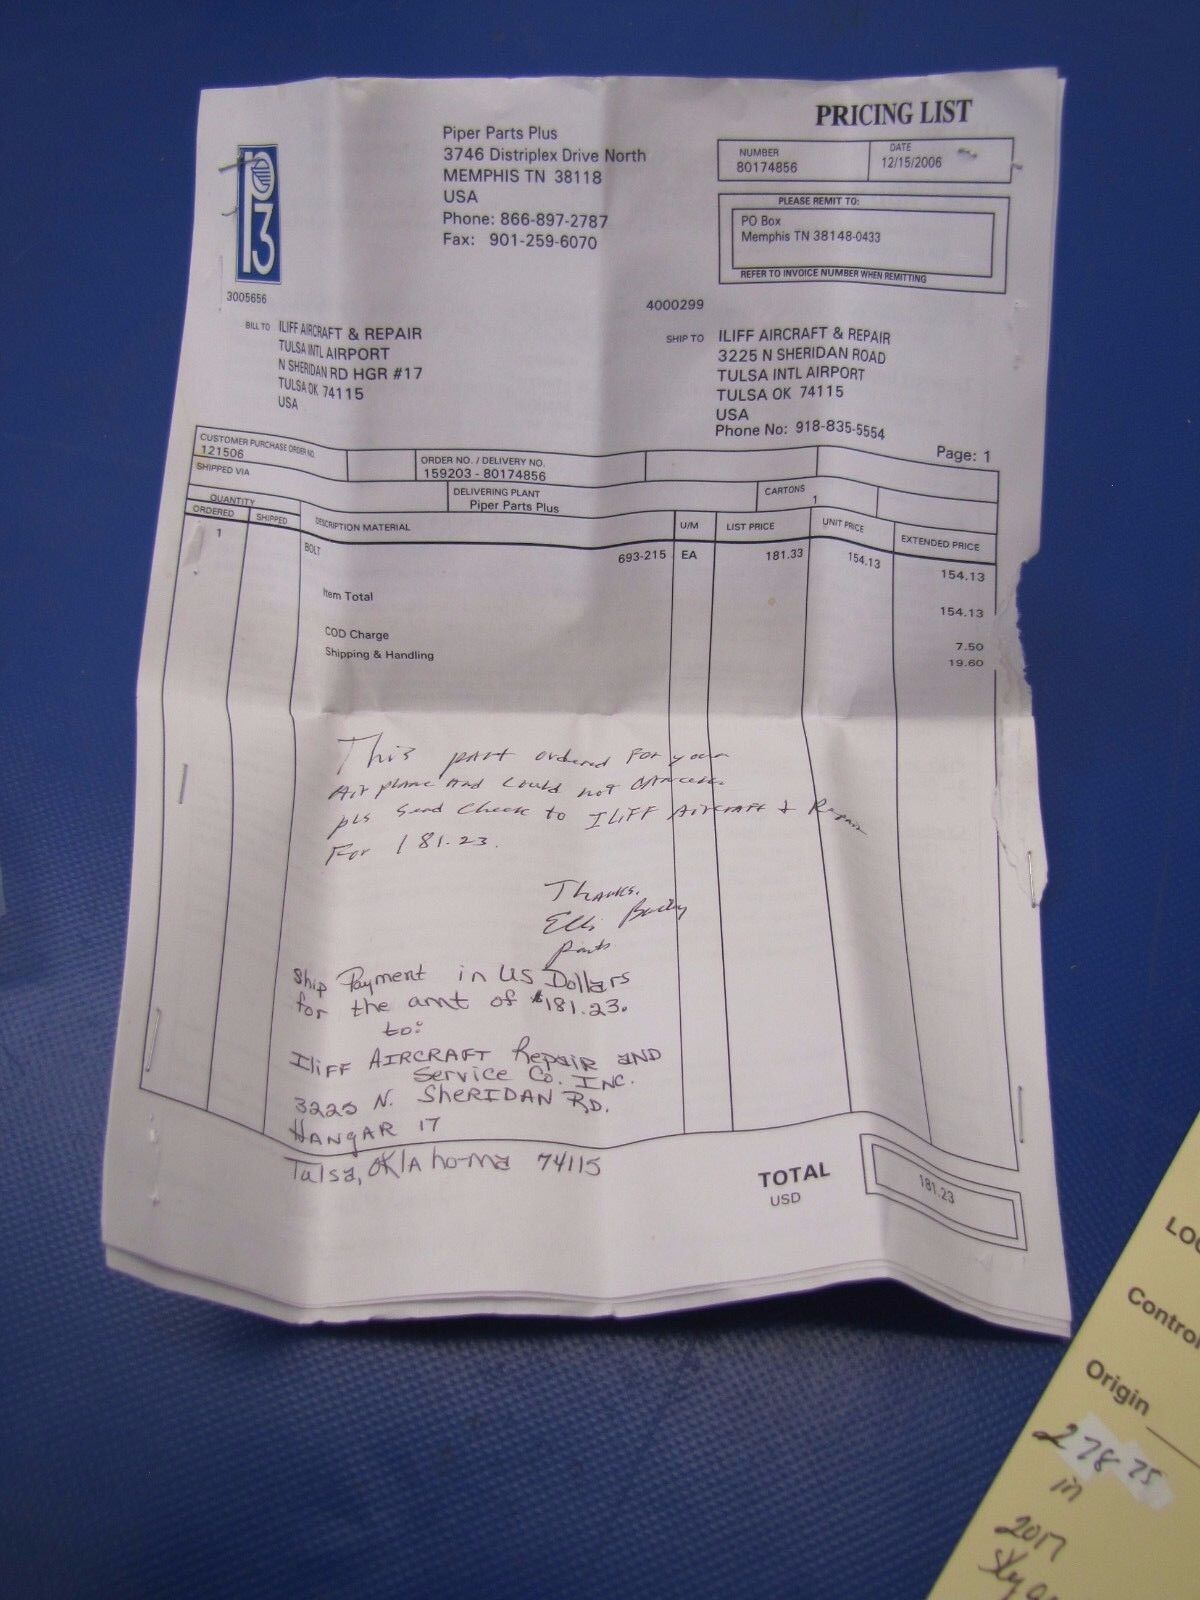 PRICING LIST
P3
Piper Parts Plus
3746 Distriplex Drive North
MEMPHIS TN 38118
USA
Phone: 866-897-2787
Fax: 901-259-6070
NUMBER
80174856
DATE
12/15/2006
PLEASE REMIT TO:
PO Box
Memphis TN 38148-0433
REFER TO INVOICE NUMBER WHEN REMITTING
3005656
BILL TO ILIFF AIRCRAFT & REPAIR
TULSA INTL AIRPORT
N SHERIDAN RD HGR #17
TULSA OK 74115
USA
4000299
SHIP TO ILIFF AIRCRAFT & REPAIR
3225 N SHERIDAN ROAD
TULSA INTL AIRPORT
TULSA OK 74115
USA
Phone No: 918-835-5554
Page: 1
CUSTOMER PURCHASE ORDER NO.
121506
ORDER NO. / DELIVERY NO.
159203 - 80174856
SHIPPED VIA
DELIVERING PLANT
Piper Parts Plus
CARTONS
1
QUANTITY
ORDERED SHIPPED DESCRIPTION MATERIAL U/M LIST PRICE UNIT PRICE EXTENDED PRICE
1 BOLT 693-215 EA 181.33 154.13 154.13
Item Total 154.13
COD Charge 7.50
Shipping & Handling 19.60
This part ordered For your
Airplane And could not
pls Send Check to ILIFF Aircraft & Repair
For 181.23.
Thanks.
Parts
Ship Payment in US Dollars
for the amt of $181.23.
to:
Iliff AIRCRAFT Repair AND
Service Co. INC.
3225 N. SHERIDAN RD.
HANGAR 17
Tulsa, OKLAhoma 74115
TOTAL
USD
181.23
LOC
Control
Origin
278-75
in
2017